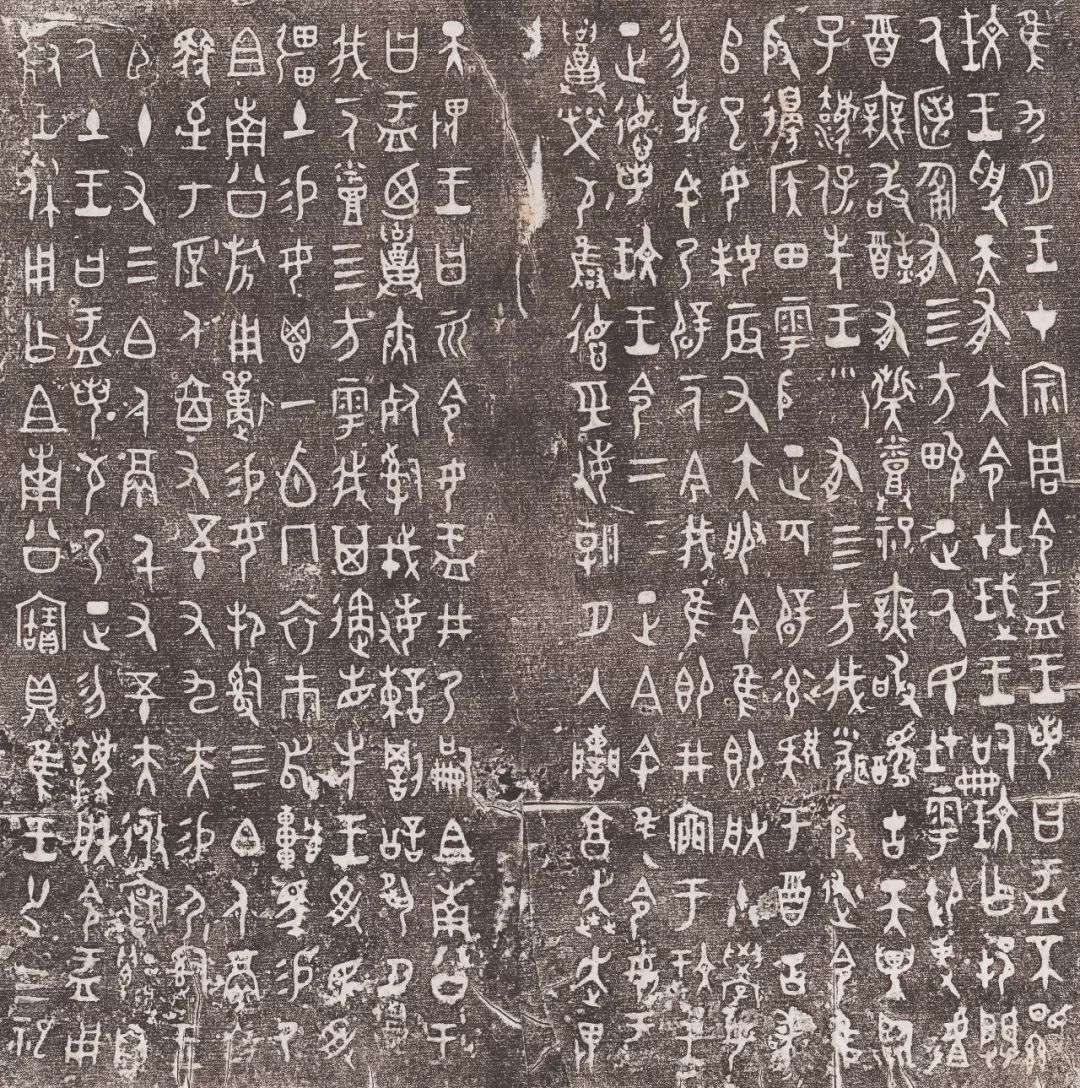 隹九月王才宗周令盂王若曰盂不顯
玟王受天有大令在珷王嗣玟乍邦闢
厥匿匍有四方畯正厥民在雩御事𠭯
酉無敢酖有髭蒸祀無敢醻古天異臨
子灋保先王有四方我聞殷述令隹
殷邊侯田雩殷正百辟率肄于酉古喪
師已女妹辰有大服余隹即朕小學女
勿克余乃辟一人今我隹即井㐭于玟王
正德若玟王令二三正今余隹令女盂
召榮敬雍德經敏朝夕入讕享奔走畏
天畏王曰而令女盂井乃嗣且南公王
曰盂廼召夾死司戎敏諫罰訟夙夕召
我一人烝四方雩我其遹省先王受民受
疆土易女鬯一卣冂衣巿舄車馬易乃
且南公旂用狩易女邦司四白人鬲自
馭至于庶人六百又五十又九夫易尸司
王臣十又三白人鬲千又五十夫遷
自厥土王曰盂若敬乃正勿灋朕令盂
用對王休用乍且南公寶鼎隹王廿又三祀